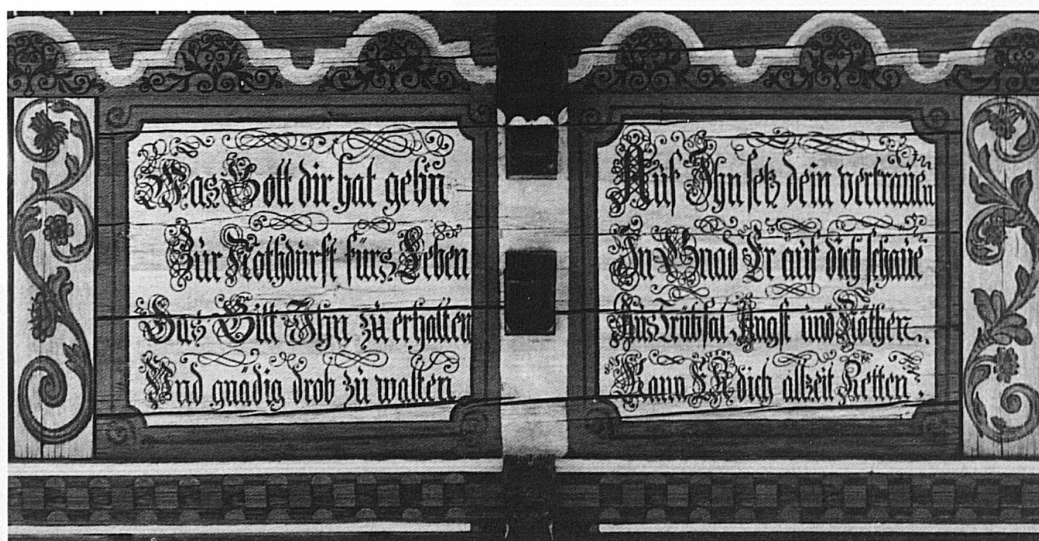 Was Gott dir hat geb'n
Zür Nothdürft fürs Leben
Das Bitt Ihn zü erhalten
Und gnädig drob zü walten
Auf Ihn setz dein vertrauen
In Gnad Er auf dich schaue
Aus Trübsal, Angst und Nöthen.
Kann ER dich allzeit Retten.